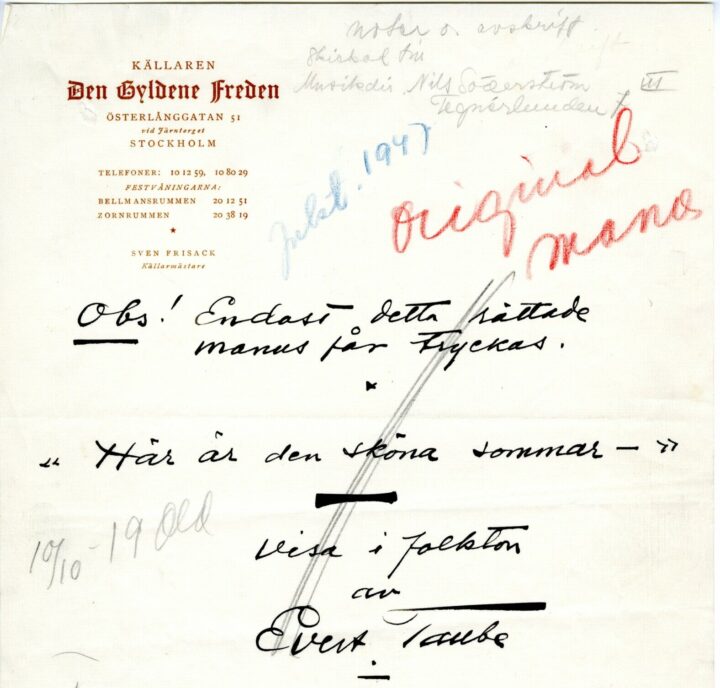 noter o. avskrift
Musikdir. Nils Söderström III
Tegnérlunden
KÄLLAREN
Den Gyldene Freden
ÖSTERLÅNGGATAN 51
vid Järntorget
STOCKHOLM
TELEFONER: 10 12 59, 10 80 29
FESTVÅNINGARNA:
BELLMANSRUMMEN 20 12 51
ZORNRUMMEN 20 38 19
SVEN FRISACK
Källarmästare
1947
Original
manus
Obs! Endast detta rättade
manus får tryckas.
"Här är den sköna sommar — "
10/10 - 19
Visa i folkton
av
Evert Taube